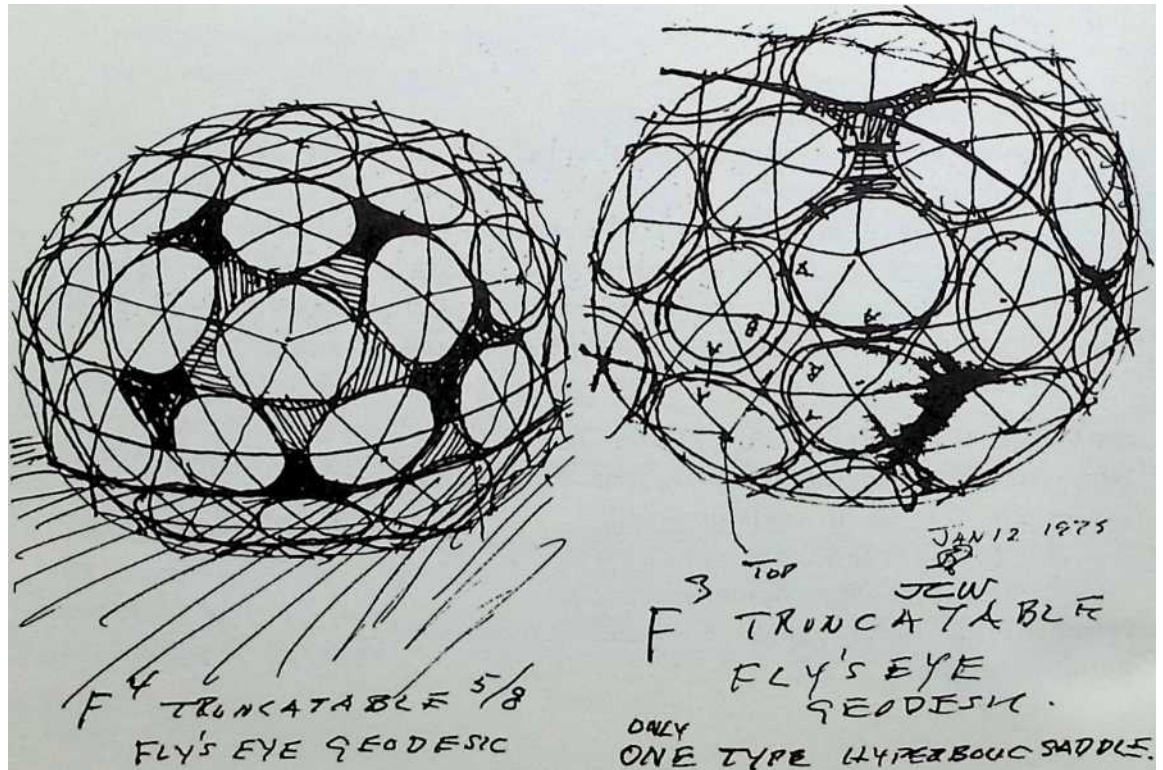 F⁴ TRUNCATABLE 5/8
FLY'S EYE GEODESIC
TOP
JAN 12 1975
JCW
F³ TRUNCATABLE
FLY'S EYE
GEODESIC.
ONLY
ONE TYPE HYPERBOLIC SADDLE.